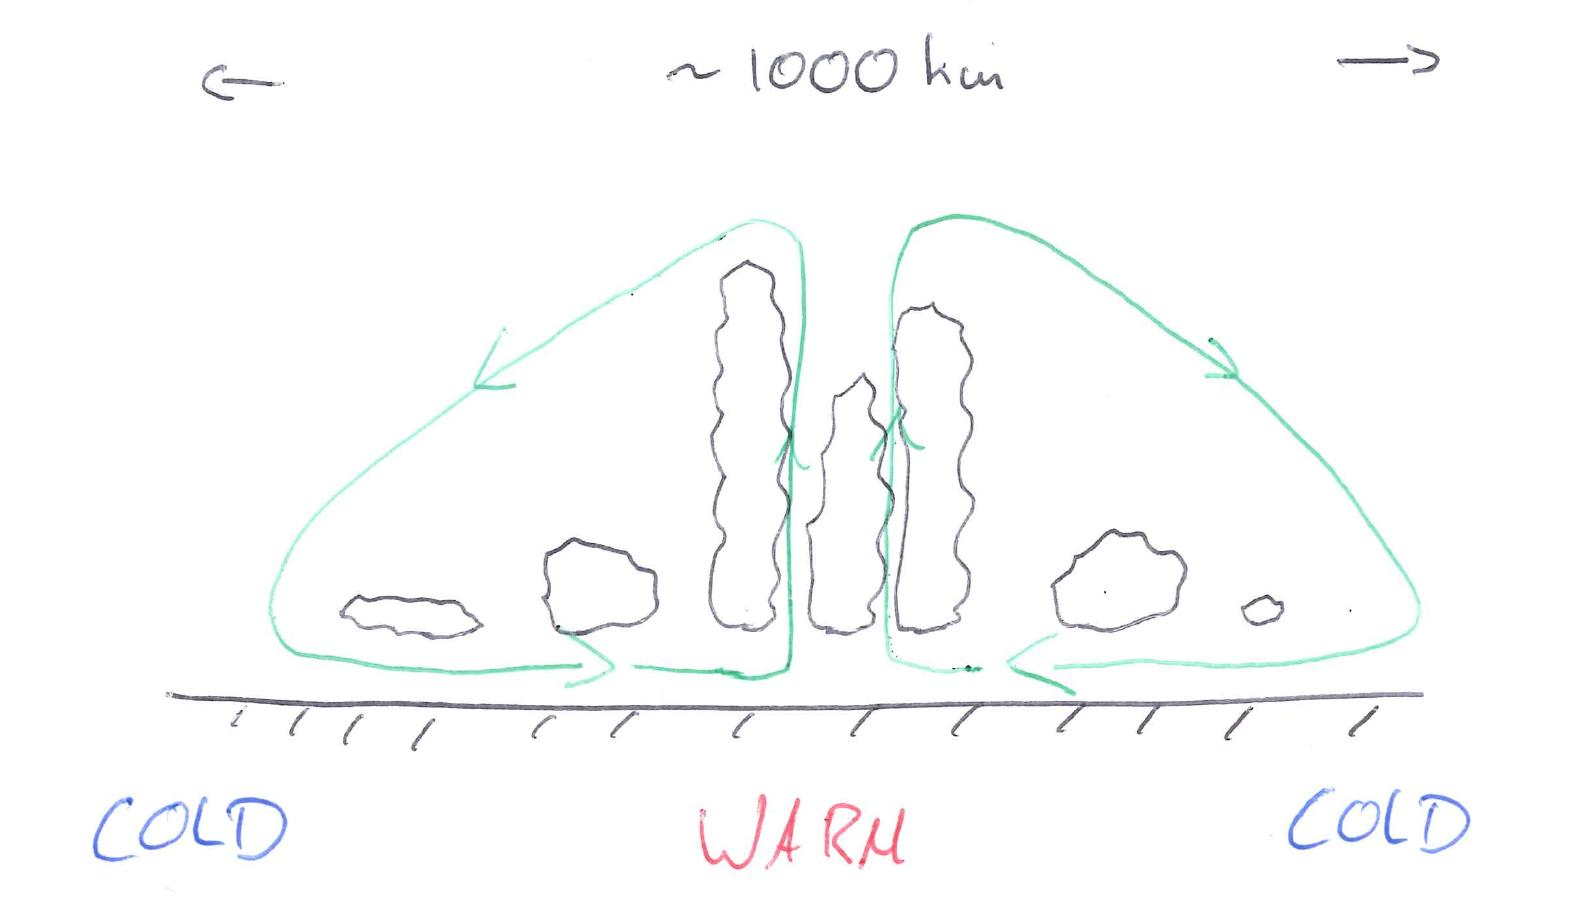 ~ 1000 km
COLD WARM COLD